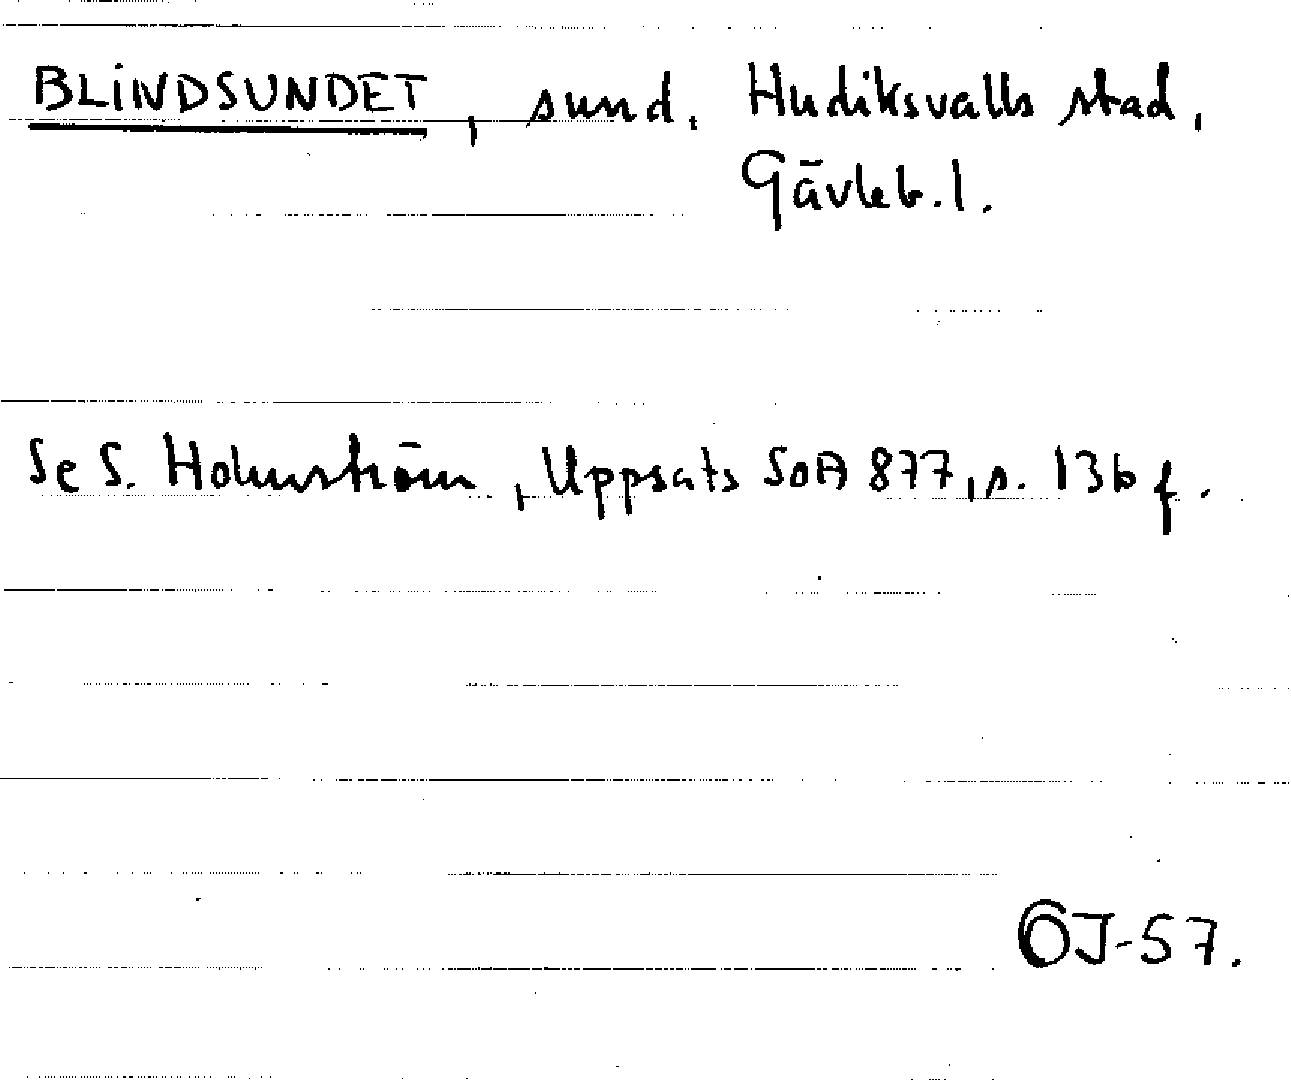 BLINDSUNDET, sund. Hudiksvalls stad,
Gävleb.l.
Se S. Holmström, Uppsats SOA 877, s. 136 f.
ÖJ-57.